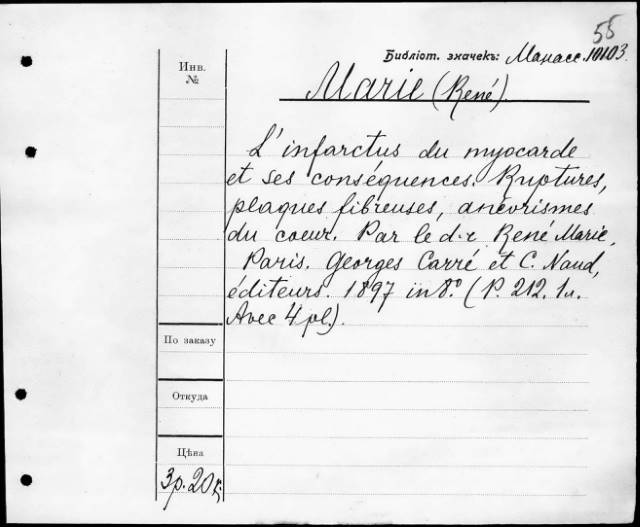 55
Библіот. значекъ: Манасс. 10103.
Инв.
№
Marie (René).
L'infarctus du myocarde
et ses conséquences. Ruptures,
plaques fibreuses, anévrismes
du coeur. Par le d-r René Marie.
Paris. Georges Carré et C. Naud,
éditeurs. 1897 in 8.º (P. 212. 1 л.
Avec 4 pl.).
По заказу
Откуда
Цѣна
3 р. 20 к.